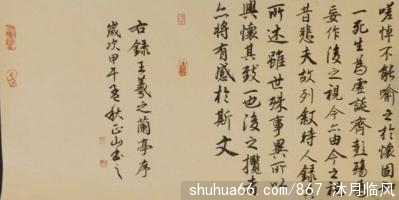 嗟悼不能喻之於懷固
一死生為虛誕齊彭殤
妄作後之視今亦由今之視
昔悲夫故列敘時人錄
所述雖世殊事異所以
興懷其致一也後之攬者
亦將有感於斯文
右錄王羲之蘭亭序
歲次甲午孟秋正山書之
shuhua66.com/867 沐月临风